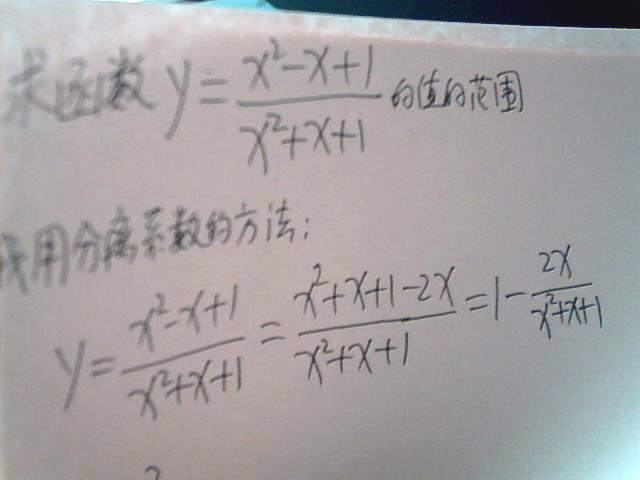 求函数 y = (x²-x+1)/(x²+x+1) 的值的范围
我用分离系数的方法:
y = (x²-x+1)/(x²+x+1) = (x²+x+1-2x)/(x²+x+1) = 1 - 2x/(x²+x+1)